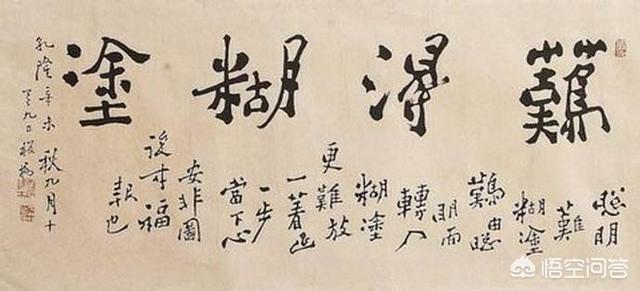 難得糊塗
聰明
難
糊塗
難由聰
明而
轉入
糊塗
更難放
一著退
一步
當下心
安非圖
後来福
報也
乾隆辛未秋九月十
九日板橋
悟空问答